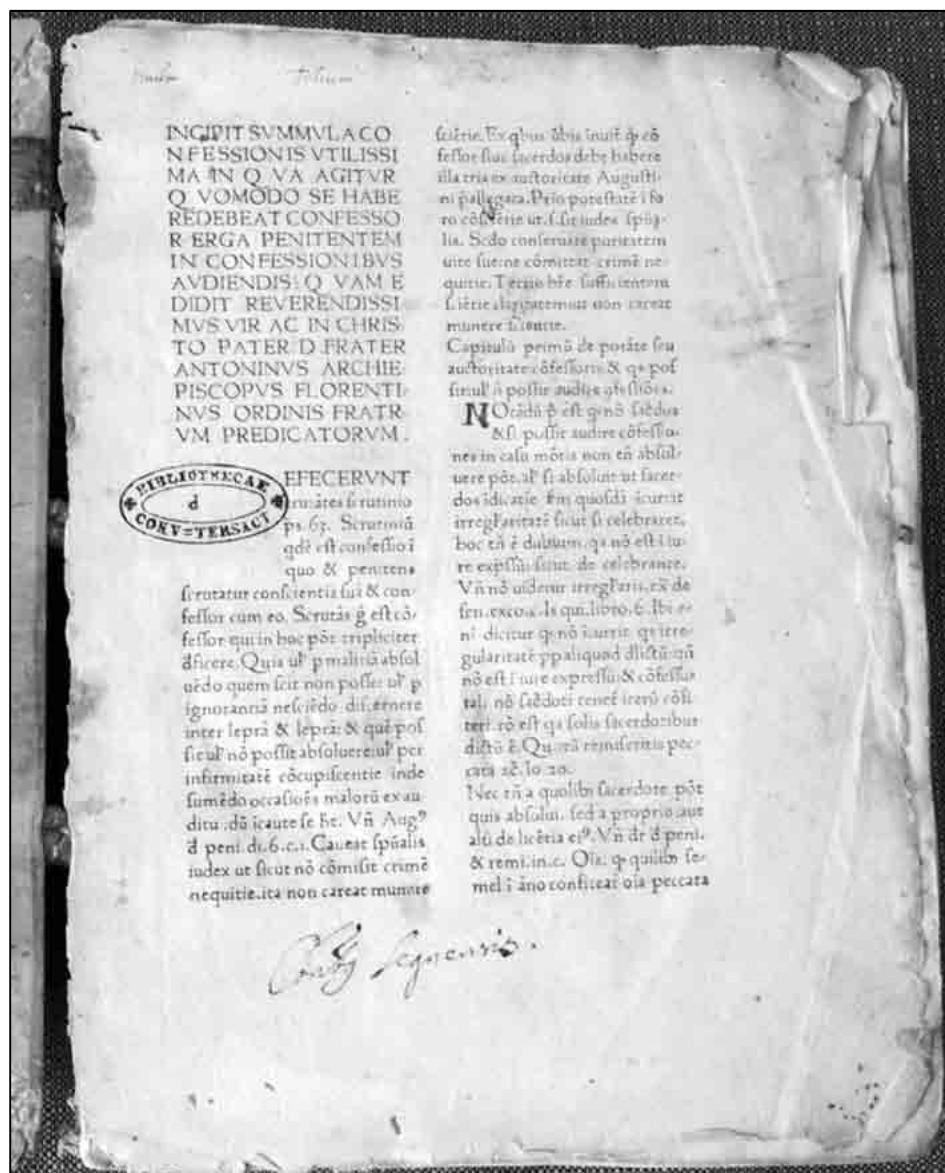 INCIPIT SVMMVLA CO
NFESSIONIS VTILISSI
MA IN Q VA AGITVR
Q VOMODO SE HABE
REDEBEAT CONFESSO
R ERGA PENITENTEM
IN CONFESSIONIBVS
AVDIENDIS: Q VAM E
DIDIT REVERENDISSI
MVS VIR AC IN CHRIS
TO PATER D FRATER
ANTONINVS ARCHIE
PISCOPVS FLORENTI
NVS ORDINIS FRATR
VM PREDICATORVM.
BIBLIOTHECAE
d
CONV=TERSACT
EFECERVNT
scrutātes scrutinio
ps. 63. Scrutiniū
qdē est confessio ī
quo & penitens
scrutatur conscientiā suā & con-
fessor cum eo. Scrutās ḡ est cō-
fessor qui in hoc pōt tripliciter
dficere. Quia ul' p malitiā absol
uēdo quem scit non posse: ul' p
ignorantiā nesciēdo discernere
inter leprā & leprā: & quē pos
sit ul' nō possit absoluere: ul' per
infirmitatē cōcupiscentie inde
sumēdo occasiões malorū ex au
ditu. dū īcaute se ht. Vñ Augꝰ
d peni. di. 6. c. 1. Caueat spūalis
iudex ut sicut nō cōmisit crimē
nequitie. ita non careat munere
sciētie. Ex
fessor siue sacerdos debe habere
illa tria ex auctoritate Augusti-
ni pallegata. Prīo potestatē ī fo
ro cōsciētie ut. s. sit iudex spūa-
lis. Scdo conseruare puritatem
uite sue: ne cōmittat crimē ne-
quitie. Tertio hre sufficientem
munere sciētie.
Capitulū primū de potāte seu
auctoritate cōfessoris & qs pos
sit ul' nō possit audire
NOtādū
& si possit audire cōfessio-
nes in casu mōtis non tñ absol-
uere pōt. al' si absoluit ut sacer-
dos
irregl'aritatē sicut si celebraret.
hoc tñ ē dubium. qa nō est ī iu-
re expssū: sicut de celebrante.
Vñ nō uidetur irregl'aris. ex de
sen. exco. c. Is qui. libro. 6. Ibi e-
nī dicitur q nō īcurrit qs irre-
gularitatē pp aliquod dlictū: qñ
nō est ī iure expressū: & cōfessus
tali nō sacdoti tenet iterū cōfi
teri. rō est qa solis sacerdotibus
dictū ē. Quorū remiseritis pec-
cata zc. Io. 20.
Nec tñ a quolibet sacerdote pōt
quis absolui. sed a proprio aut
aliū de licētia eiꝰ. Vñ dr d peni.
& remi. in. c. Oīs. q quilibet se-
mel ī āno confiteat oīa peccata